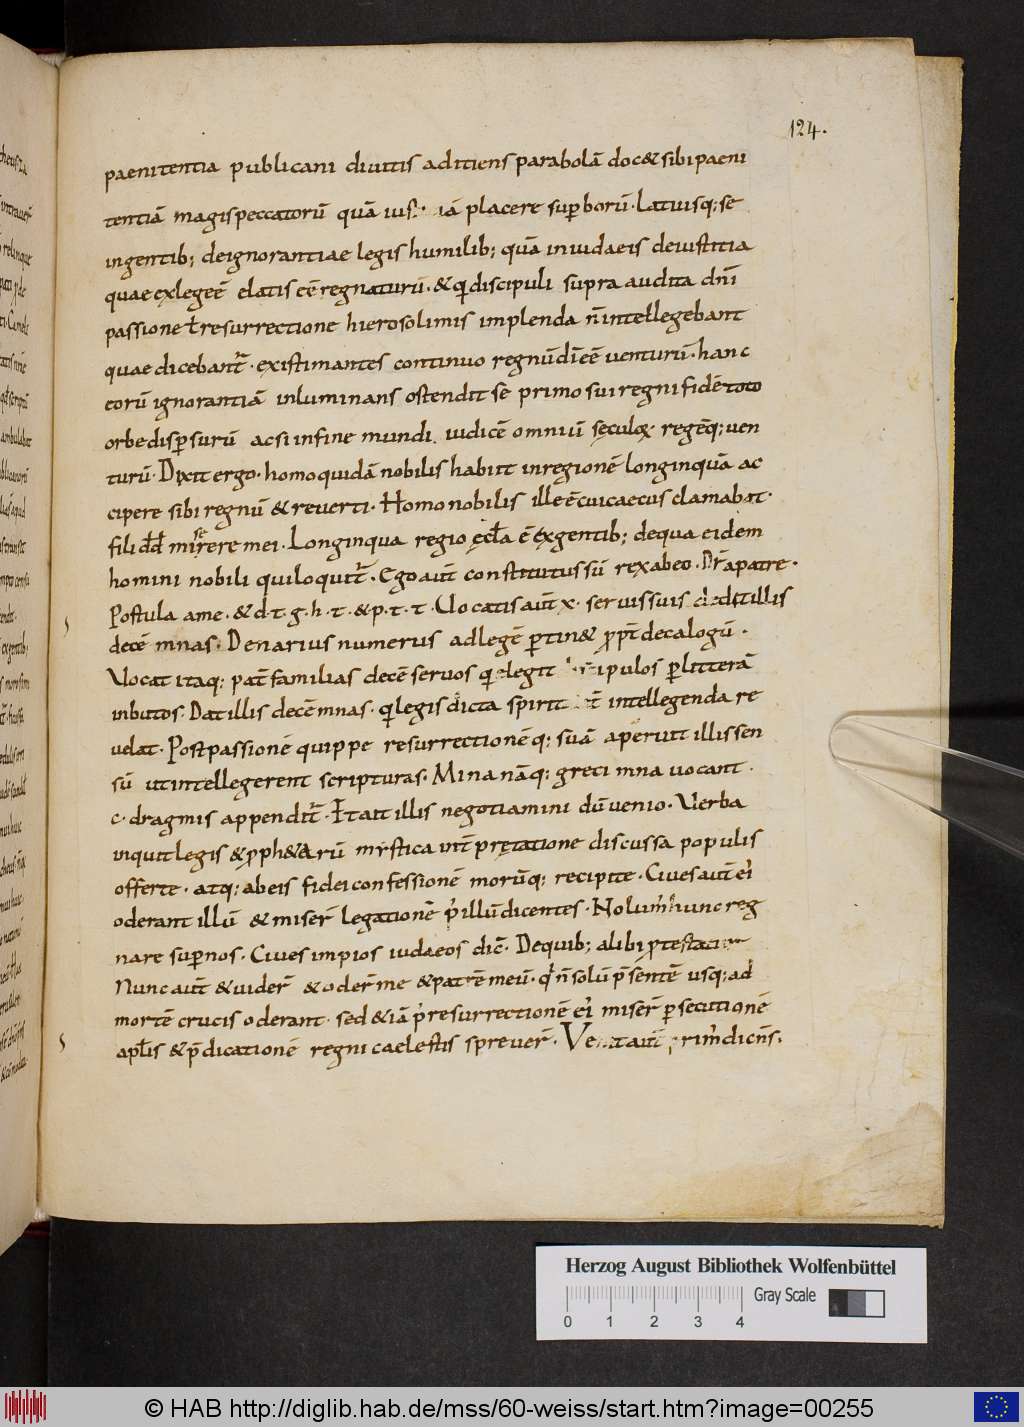 124.
paenitentia publicani divitis aditiens parabolā doc& sibi paeni
tentiā magis peccatorū quā placere sup̄borū. Latiusq; se
in gentib; de ignorantiae legis humilib; quā in iudaeis de iustitia
quae ex lege ē elatis eē regnaturū. & qi discipuli supra audita dn̄i
passione ł resurrectione hierosolimis implenda n̄ intellegebant
quae dicebant̄. existimantes continuo regnū dī eē venturū. hanc
eorū ignorantiā inluminans ostendit se primo sui regni fidē toto
orbe disp̄surū ac si in fine mundi iudicē omniū sęculoꝝ. regēq; ven
turū. Dixit ergo. homo quidā nobilis habiit in regionē longinquā ac
cipere sibi regnū & reverti. Homo nobilis ille ē cui caecus clamabat.
fili dd̄ miserere mei. Longinqua regio ęcƚa ē ex gentib; de qua eidem
homini nobili qui loquit̄. Ego aut̄ constitutus sū rex ab eo. Dr̄ a patre.
Postula a me. & d. t. g. h. t. & p. t. t. Vocatis aut̄ x. servis suis dedit illis
decē mnas. Denarius numerus ad legē p̱tin& ꝓpt̄ decalogū.
Vocat itaq; pat̄familias decē servos qi elegit discipulos p̱ litterā
inbutos. Dat illis decē mnas. qi legis dicta spirit intellegenda re
velat. Post passionē quippe resurrectionēq; suā aperuit illis sen
sū ut intellegerent scripturas. Mina nāq; greci mna vocant.
c. dragmis appendit̄. Et ait illis negotiamini dū venio. Verba
inquit legis & pph&arū mystica int̄prętatione discussa populis
offerte. atq; ab eis fidei confessionē morūq; recipite. Cives aut̄ eī
oderant illū & miser̄ legationē p' illū dicentes. Nolum' hunc reg
nare sup̄ nos. Cives impios iudaeos dic̄. De quib; alibi ꝓtestatur
Nunc aut̄ & vider̄ & oder̄ me & patrē meū. qī n̄ solū p̄sentē usq; ad
mortē crucis oderant. sed & iā p' resurrectionē eī miser̄ p̱secutionē
apƚis & p̄dicationē regni caelestis sprever̄. Venit aut̄ prim' dicen̄s.
Herzog August Bibliothek Wolfenbüttel
Gray Scale
0 1 2 3 4
© HAB http://diglib.hab.de/mss/60-weiss/start.htm?image=00255